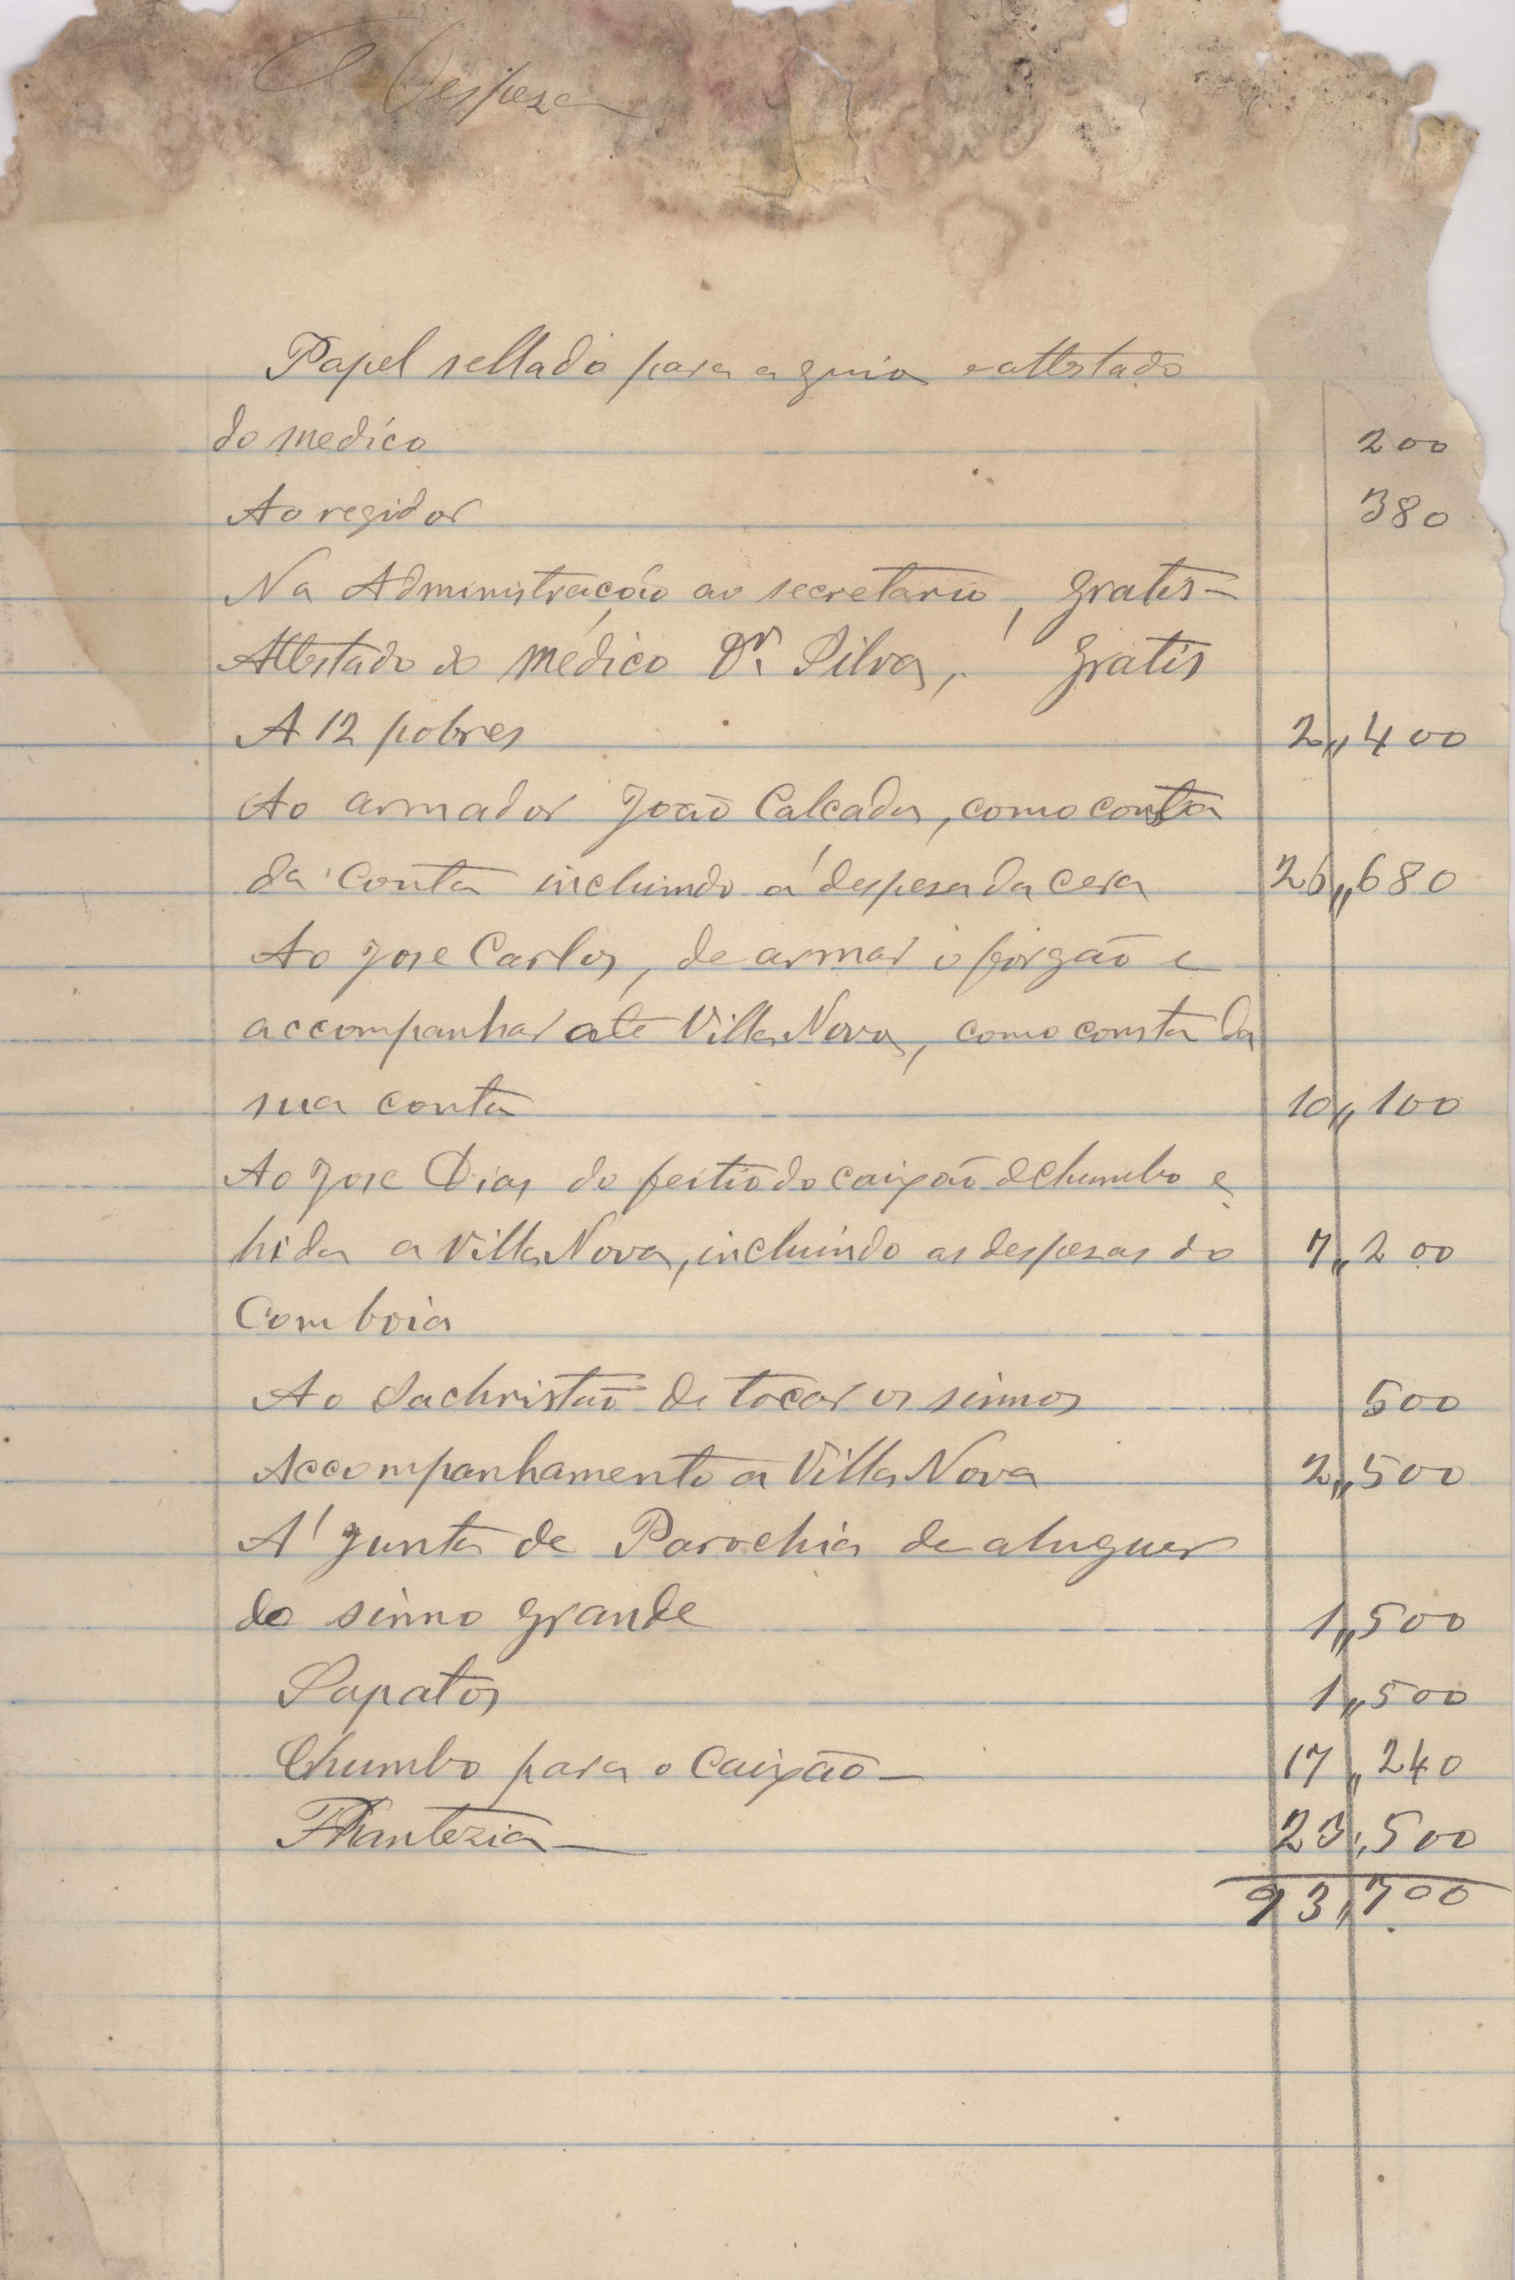 Despeza
Papel sellado para a guia e attestado
do medico 200
Ao regidor 380
Na Administração ao secretario, gratis-
Attestado do medico Dr. Silva, gratis
A 12 pobres 2,,400
Ao armador João Calçada, como consta
da conta incluindo a despesa da cera 26,,680
Ao Jose Carlos, de armar o forgão e
accompanhar até Villa Nova, como consta da
sua conta 10,,100
Ao Jose Dias do feitio do caixão de chumbo e
hida a Villa Nova, incluindo as despezas do 7,,200
Comboia
Ao Sachristão de tocar os sinnos 500
Accompanhamento a Villa Nova 2,,500
A' Junta de Parochia de aluguer
do sinno grande 1,,500
Sapatos 1,,500
Chumbo para o caixão- 17,,240
Phantezia- 23,,500
93,,700